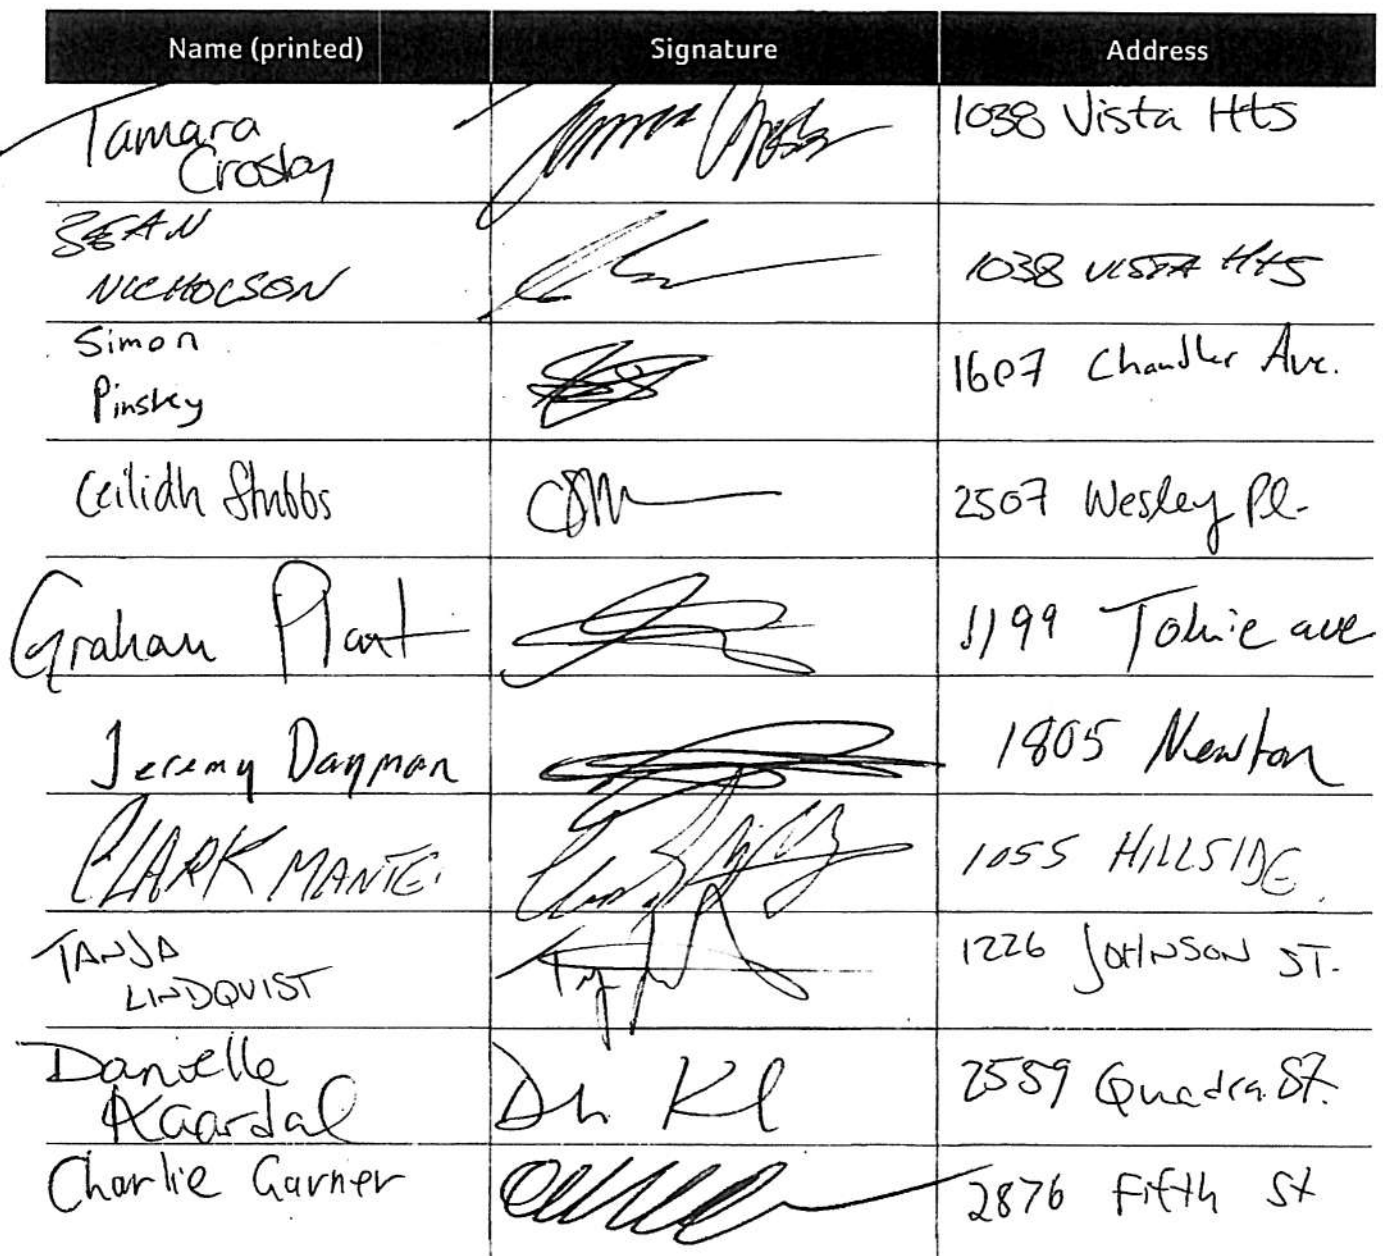 Name (printed) Signature Address
Tamara
Crosby
1038 Vista Hts
SEAN
NICHOLSON
1038 VISTA Hts
Simon
Pinskey
1607 Chandler Ave.
Ceilidh Stubbs
2507 Wesley Pl.
Graham Plant
1199 Tolmie ave
Jeremy Dayman
1805 Newton
CLARK MANTE.
1055 HILLSIDE
TANJA
LINDQUIST
1226 JOHNSON ST.
Danielle
Kaardal
2559 Quadra St.
Charlie Garner
2876 Fifth St